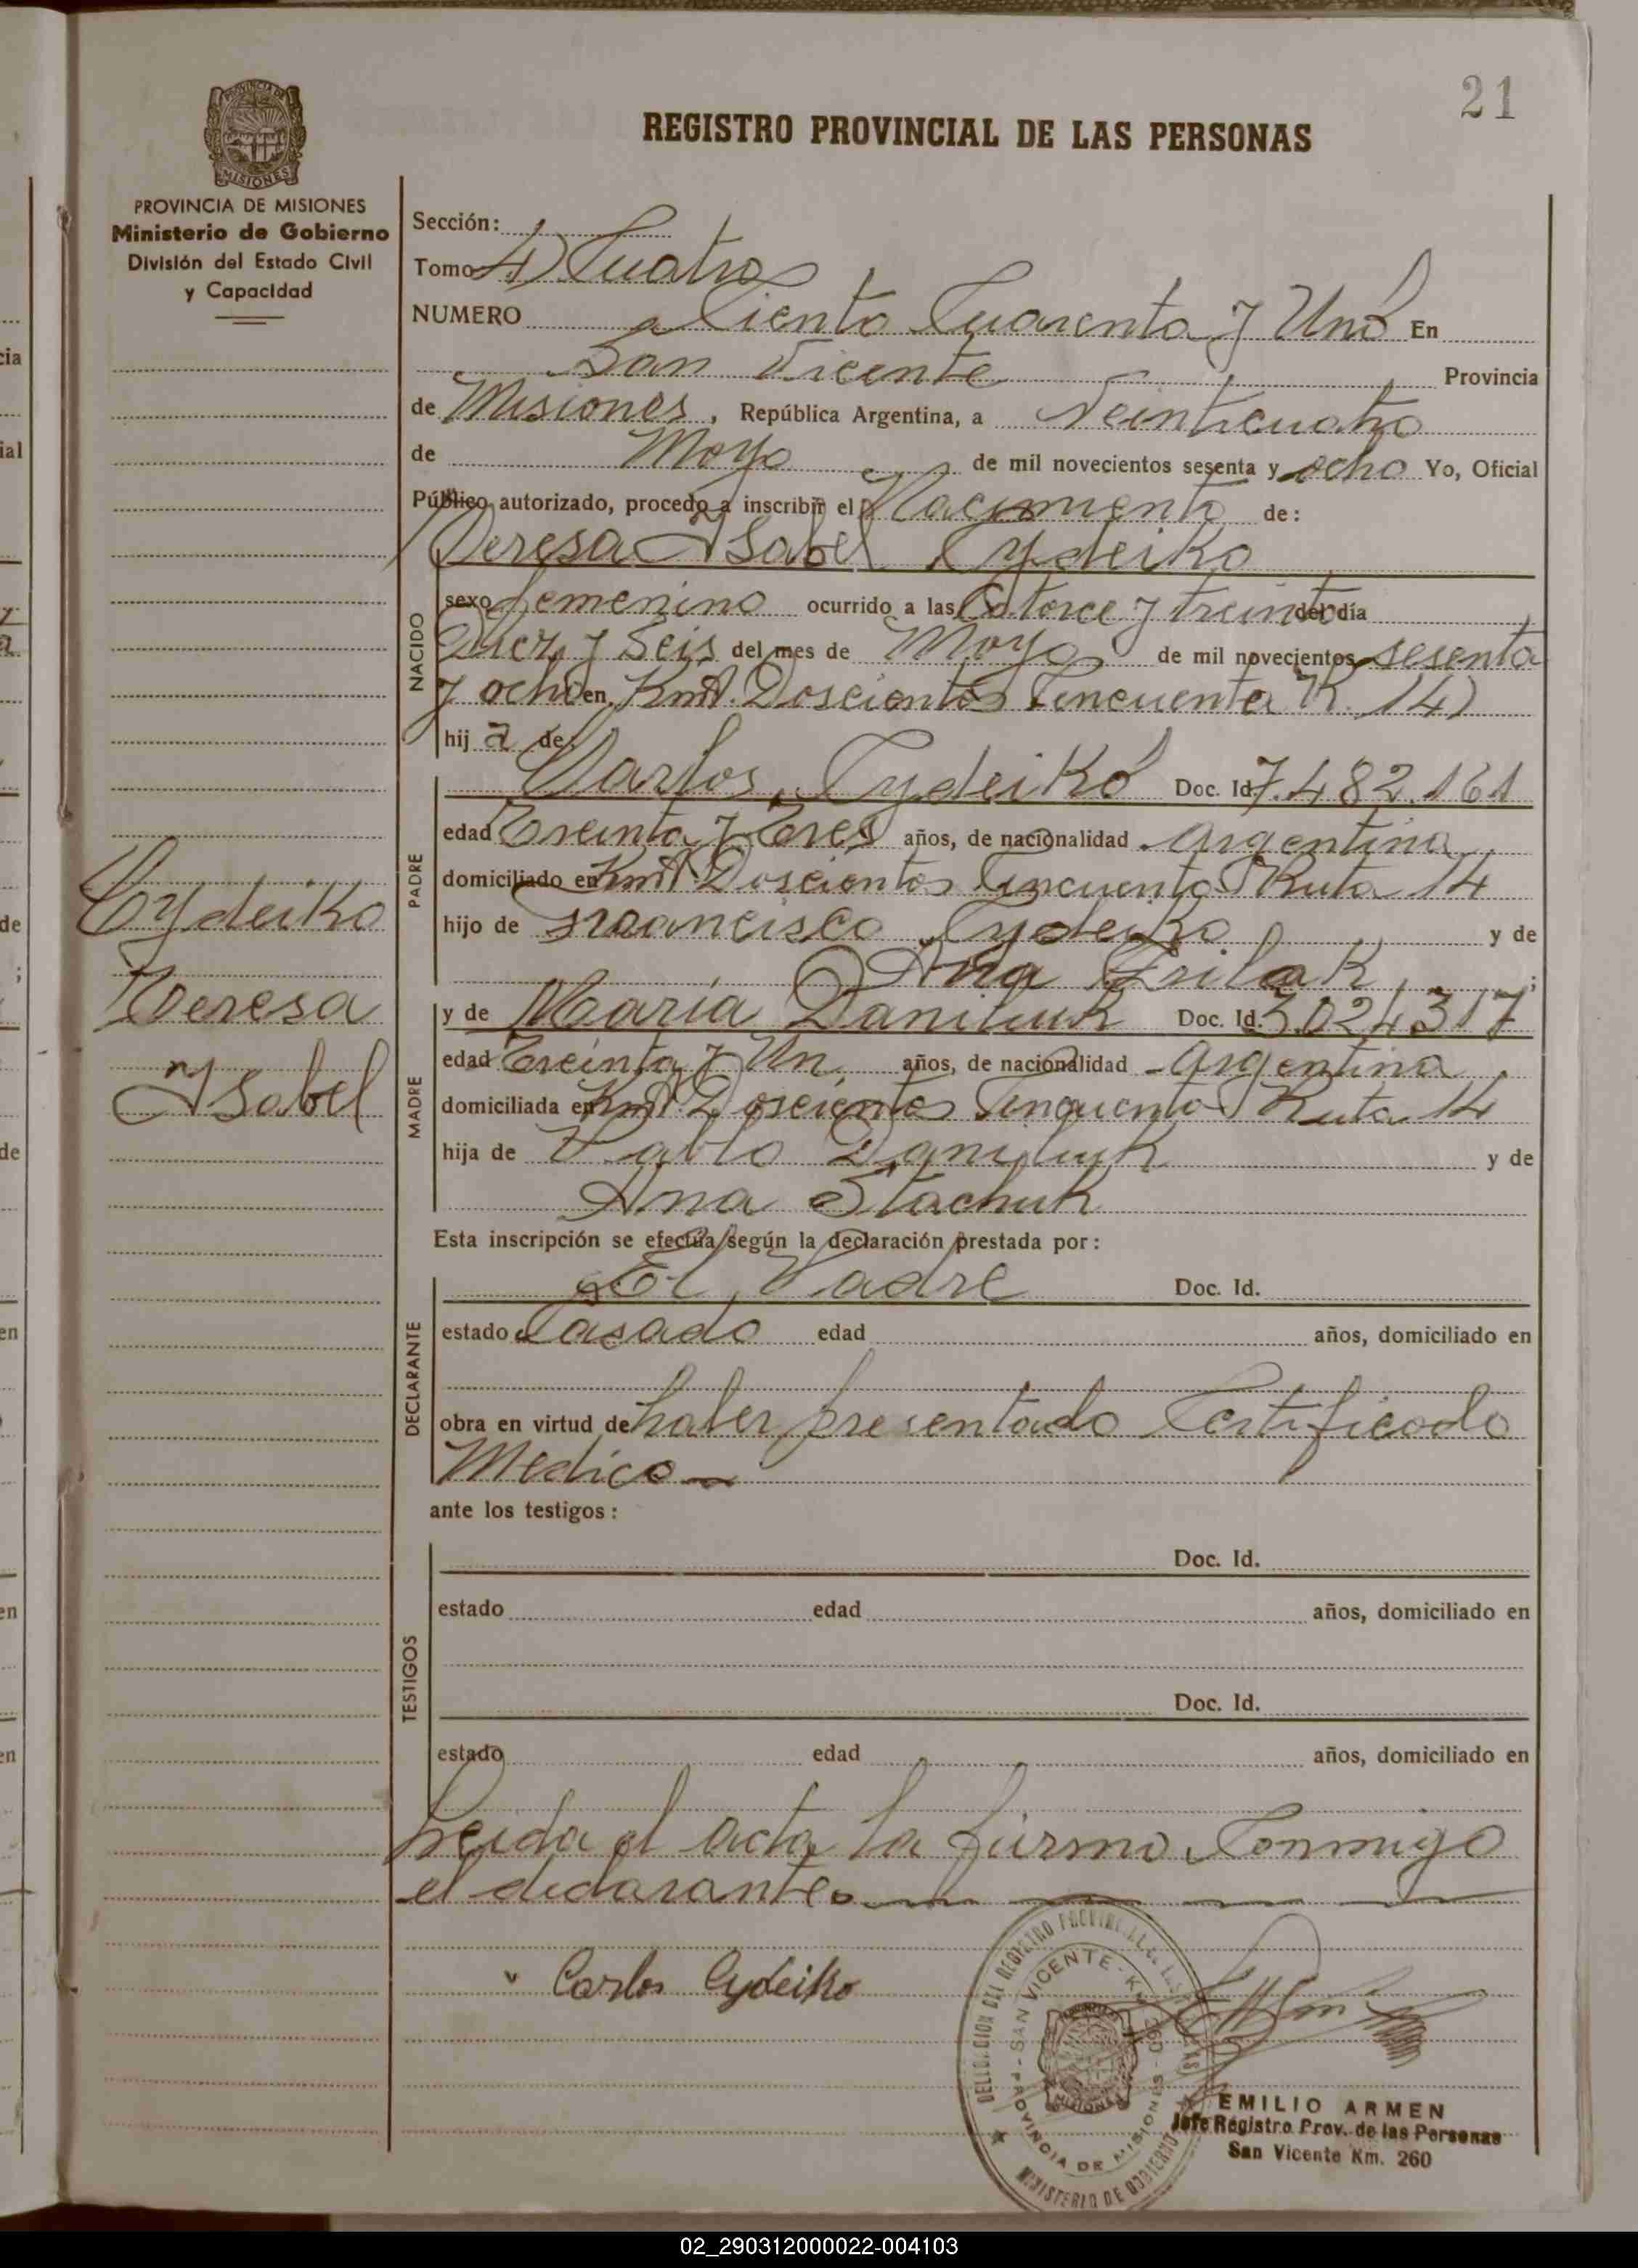 21
REGISTRO PROVINCIAL DE LAS PERSONAS
PROVINCIA DE
MISIONES
PROVINCIA DE MISIONES
Ministerio de Gobierno
División del Estado Civil
y Capacidad
Sección:
Tomo 4) Cuatro
NUMERO Ciento Cuarenta y Uno En
San Vicente Provincia
de Misiones, República Argentina, a Veinticuatro
de Mayo de mil novecientos sesenta y ocho Yo, Oficial
Público autorizado, procedo a inscribir el Nacimiento de:
Teresa Ysabel Cydeiko
NACIDO
sexo femenino ocurrido a las Catorce y treinta del día
Diez y Seis del mes de Mayo de mil novecientos sesenta
y ocho en Kmt. Doscientos Cincuenta R. 14)
hij a de
PADRE
Carlos Cydeiko Doc. Id 7.482.161
edad Treinta y Tres años, de nacionalidad Argentina
domiciliado en Kmt. Doscientos Cincuenta Ruta 14
hijo de Francisco Cydeiko y de
Ana ;
MADRE
y de María Daniluk Doc. Id. 3.024317
edad Treinta y Un años, de nacionalidad Argentina
domiciliada en Kmt. Doscientos Cinquenta Ruta 14
hija de Pablo Daniluk y de
Ana Stachuk
Cydeiko
Teresa
Ysabel
Esta inscripción se efectúa según la declaración prestada por:
DECLARANTE
El Padre Doc. Id.
estado Casado edad años, domiciliado en
obra en virtud de haber presentado Certificado
Medico
ante los testigos:
TESTIGOS
Doc. Id.
estado edad años, domiciliado en
Doc. Id.
estado edad años, domiciliado en
Leida el acta la firma Conmigo
el declarante.
Carlos Cydeiko
DELEGACION DEL REGISTRO PROVINCIAL DE LAS PERSONAS
SAN VICENTE - KM. 260 - PROVINCIA DE MISIONES
MINISTERIO DE GOBIERNO
EMILIO ARMEN
Jefe Registro Prov. de las Personas
San Vicente Km. 260
02_290312000022-004103